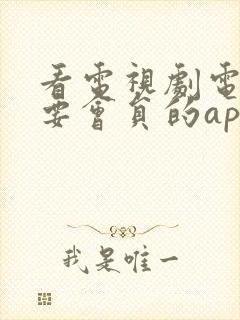 看電視劇電
要會員的ap
我是唯一